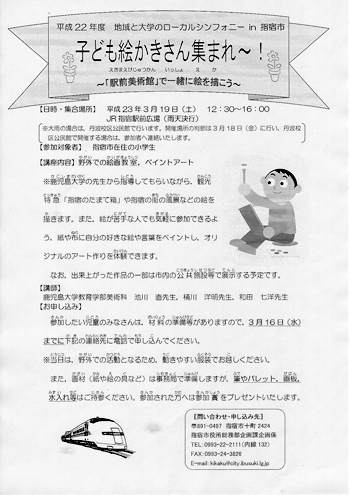 平成22年度 地域と大学のローカルシンフォニー in 指宿市
子ども絵かきさん集まれ～！
えきまえびじゅつかん いっしょ え か
～「駅前美術館」で一緒に絵を描こう～
【日時・集合場所】 平成23年3月19日（土） 12：30～16：00
JR指宿駅前広場（雨天決行）
※大雨の場合は、丹波校区公民館で行います。開催場所の可否は3月18日（金）に行い、丹波校
区公民館で開催する場合は、参加者へ連絡いたします。
【参加対象者】 指宿市在住の小学生
【講座内容】野外での絵画教室、ペイントアート
※鹿児島大学の先生から指導してもらいながら、観光
特急「指宿のたまて箱」や指宿の街の風景などの絵を
描きます。また、絵が苦手な人でも気軽に参加できるよ
う、紙や布に自分の好きな絵や言葉をペイントし、オリ
ジナルのアート作りを体験できます。
なお、出来上がった作品の一部は市内の公共施設等で展示する予定です。
【講師】
鹿児島大学教育学部美術科 池川 直先生、桶川 洋明先生、和田 七洋先生
【お申し込み】
参加したい児童のみなさんは、材料の準備等がありますので、3月16日（水）
までに下記の連絡先に電話で申し込んでください。
※当日は、野外での活動となるため、動きやすい服装でお越しください。
また、画材（紙や絵の具など）は事務局で準備しますが、筆やパレット、画板、
水入れ等はご持参ください。参加された方へは参加賞をプレゼントいたします。
【問い合わせ・申し込み先】
〒891-0497 指宿市十町2424
指宿市役所総務部企画課企画係
TEL:0993-22-2111（内線132）
FAX:0993-24-3826
E-mail:kikaku@city.ibusuki.lg.jp